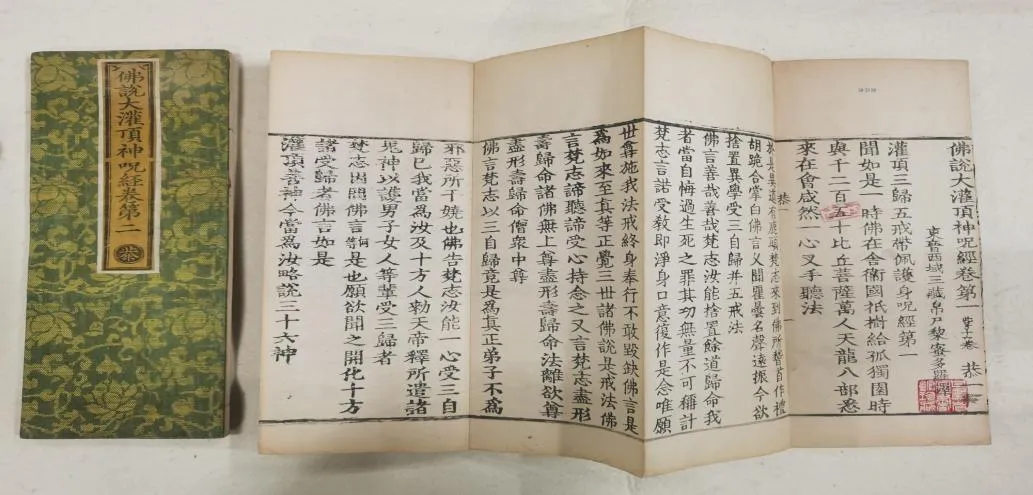 佛說大灌頂神呪經卷第二
恭
佛說大灌頂神呪經卷第一 恭一
東晉西域三藏帛尸黎蜜多羅
灌頂三歸五戒帶佩護身呪經第一
聞如是一時佛在舍衞國祇樹給孤獨園時
與千二百五十比丘菩薩萬人天龍八部悉
來在會咸然一心叉手聽法
恭一
於是異道有鹿頭梵志來到佛所稽首作禮
胡跪合掌白佛言久聞瞿曇名聲遠振今欲
捨置異學受三自歸并五戒法
佛言善哉善哉梵志汝能捨置餘道歸命我
者當自悔過生死之罪其功無量不可稱計
梵志言諾受教即淨身口意復作是念唯願
世尊施我法戒終身奉行不敢毀缺佛言是
為如來至真等正覺三世諸佛說是戒法佛
言梵志諦聽諦受心持念之又言梵志盡形
壽歸命諸佛無上尊盡形壽歸命法離欲尊
盡形壽歸命僧衆中尊
佛言梵志以三自歸竟是為真正弟子不為
邪惡所干嬈也佛告梵志汝能一心受三自
歸已我當為汝及十方人勑天帝釋所遣諸
鬼神以護男子女人等輩受三歸者
梵志因問佛言何等是也願欲聞之開化十方
諸受歸者佛言如是
灌頂善神今當為汝略說三十六神